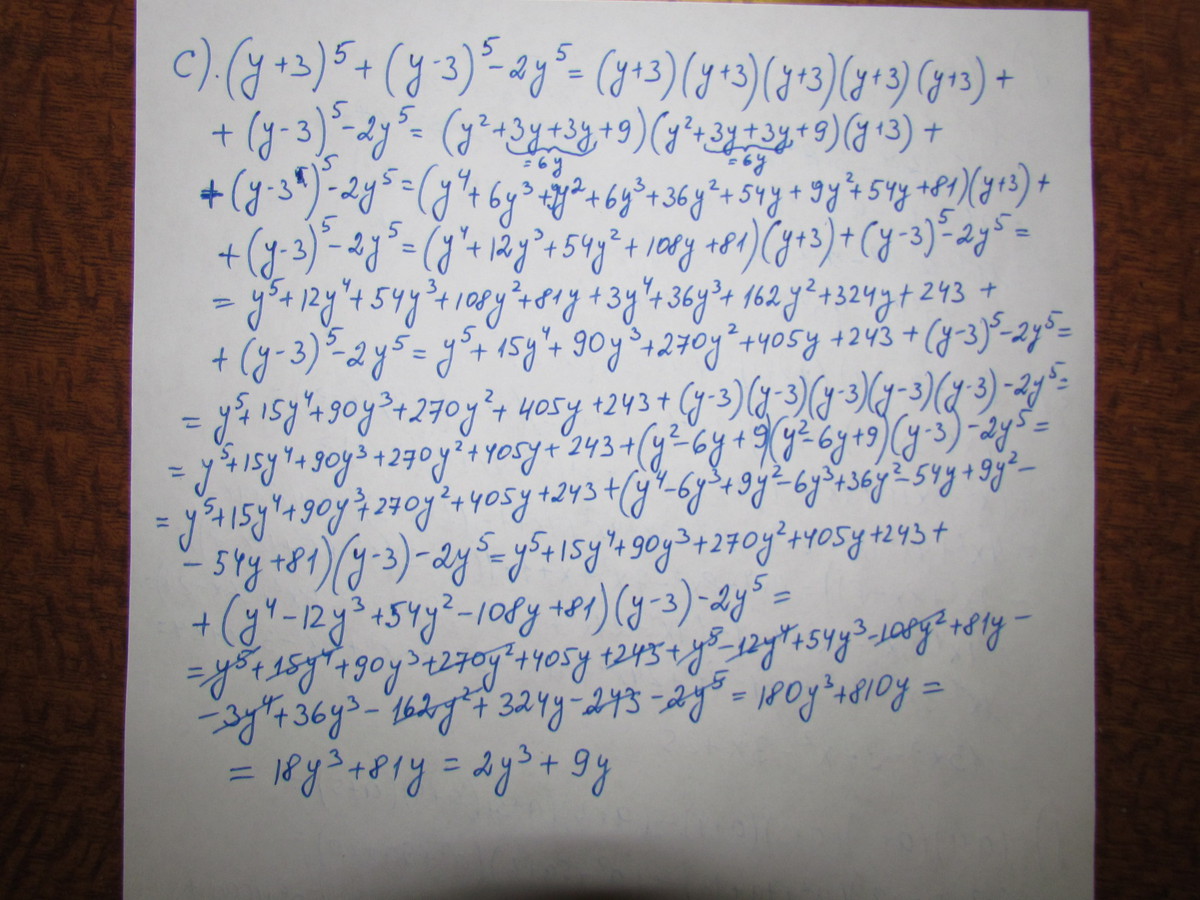 C). (y+3)⁵ + (y-3)⁵ - 2y⁵ = (y+3)(y+3)(y+3)(y+3)(y+3) +
+ (y-3)⁵ - 2y⁵ = (y² + 3y + 3y + 9)(y² + 3y + 3y + 9)(y+3) +
= 6y = 6y
+ (y-3)⁵ - 2y⁵ = (y⁴ + 6y³ + 9y² + 6y³ + 36y² + 54y + 9y² + 54y + 81)(y+3) +
+ (y-3)⁵ - 2y⁵ = (y⁴ + 12y³ + 54y² + 108y + 81)(y+3) + (y-3)⁵ - 2y⁵ =
= y⁵ + 12y⁴ + 54y³ + 108y² + 81y + 3y⁴ + 36y³ + 162y² + 324y + 243 +
+ (y-3)⁵ - 2y⁵ = y⁵ + 15y⁴ + 90y³ + 270y² + 405y + 243 + (y-3)⁵ - 2y⁵ =
= y⁵ + 15y⁴ + 90y³ + 270y² + 405y + 243 + (y-3)(y-3)(y-3)(y-3)(y-3) - 2y⁵ =
= y⁵ + 15y⁴ + 90y³ + 270y² + 405y + 243 + (y² - 6y + 9)(y² - 6y + 9)(y-3) - 2y⁵ =
= y⁵ + 15y⁴ + 90y³ + 270y² + 405y + 243 + (y⁴ - 6y³ + 9y² - 6y³ + 36y² - 54y + 9y² -
- 54y + 81)(y-3) - 2y⁵ = y⁵ + 15y⁴ + 90y³ + 270y² + 405y + 243 +
+ (y⁴ - 12y³ + 54y² - 108y + 81)(y-3) - 2y⁵ =
= y⁵ + 15y⁴ + 90y³ + 270y² + 405y + 243 + y⁵ - 12y⁴ + 54y³ - 108y² + 81y -
- 3y⁴ + 36y³ - 162y² + 324y - 243 - 2y⁵ = 180y³ + 810y =
= 18y³ + 81y = 2y³ + 9y